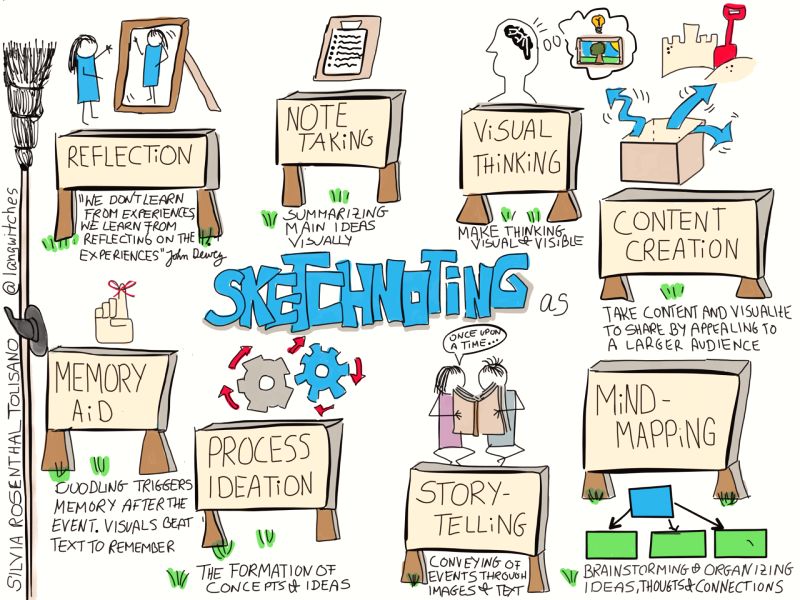 REFLECTION
"WE DON'T LEARN
FROM EXPERIENCES
WE LEARN FROM
REFLECTING ON THE
EXPERIENCES" John Dewey
NOTE
TAKING
SUMMARIZING
MAIN IDEAS
VISUALLY
VISUAL
THINKING
MAKE THINKING
VISUAL & VISIBLE
CONTENT
CREATION
TAKE CONTENT AND VISUALITE
TO SHARE BY APPEALING TO
A LARGER AUDIENCE
SKETCHNOTING as
MEMORY
AID
DOODLING TRIGGERS
MEMORY AFTER THE
EVENT. VISUALS BEAT
TEXT TO REMEMBER
PROCESS
IDEATION
THE FORMATION OF
CONCEPTS & IDEAS
ONCE UPON
A TIME...
STORY-
TELLING
CONVEYING OF
EVENTS THROUGH
IMAGES & TEXT
MIND-
MAPPING
BRAINSTORMING & ORGANIZING
IDEAS, THOUGTS & CONNECTIONS
SILVIA ROSENTHAL TOLISANO @langwitches